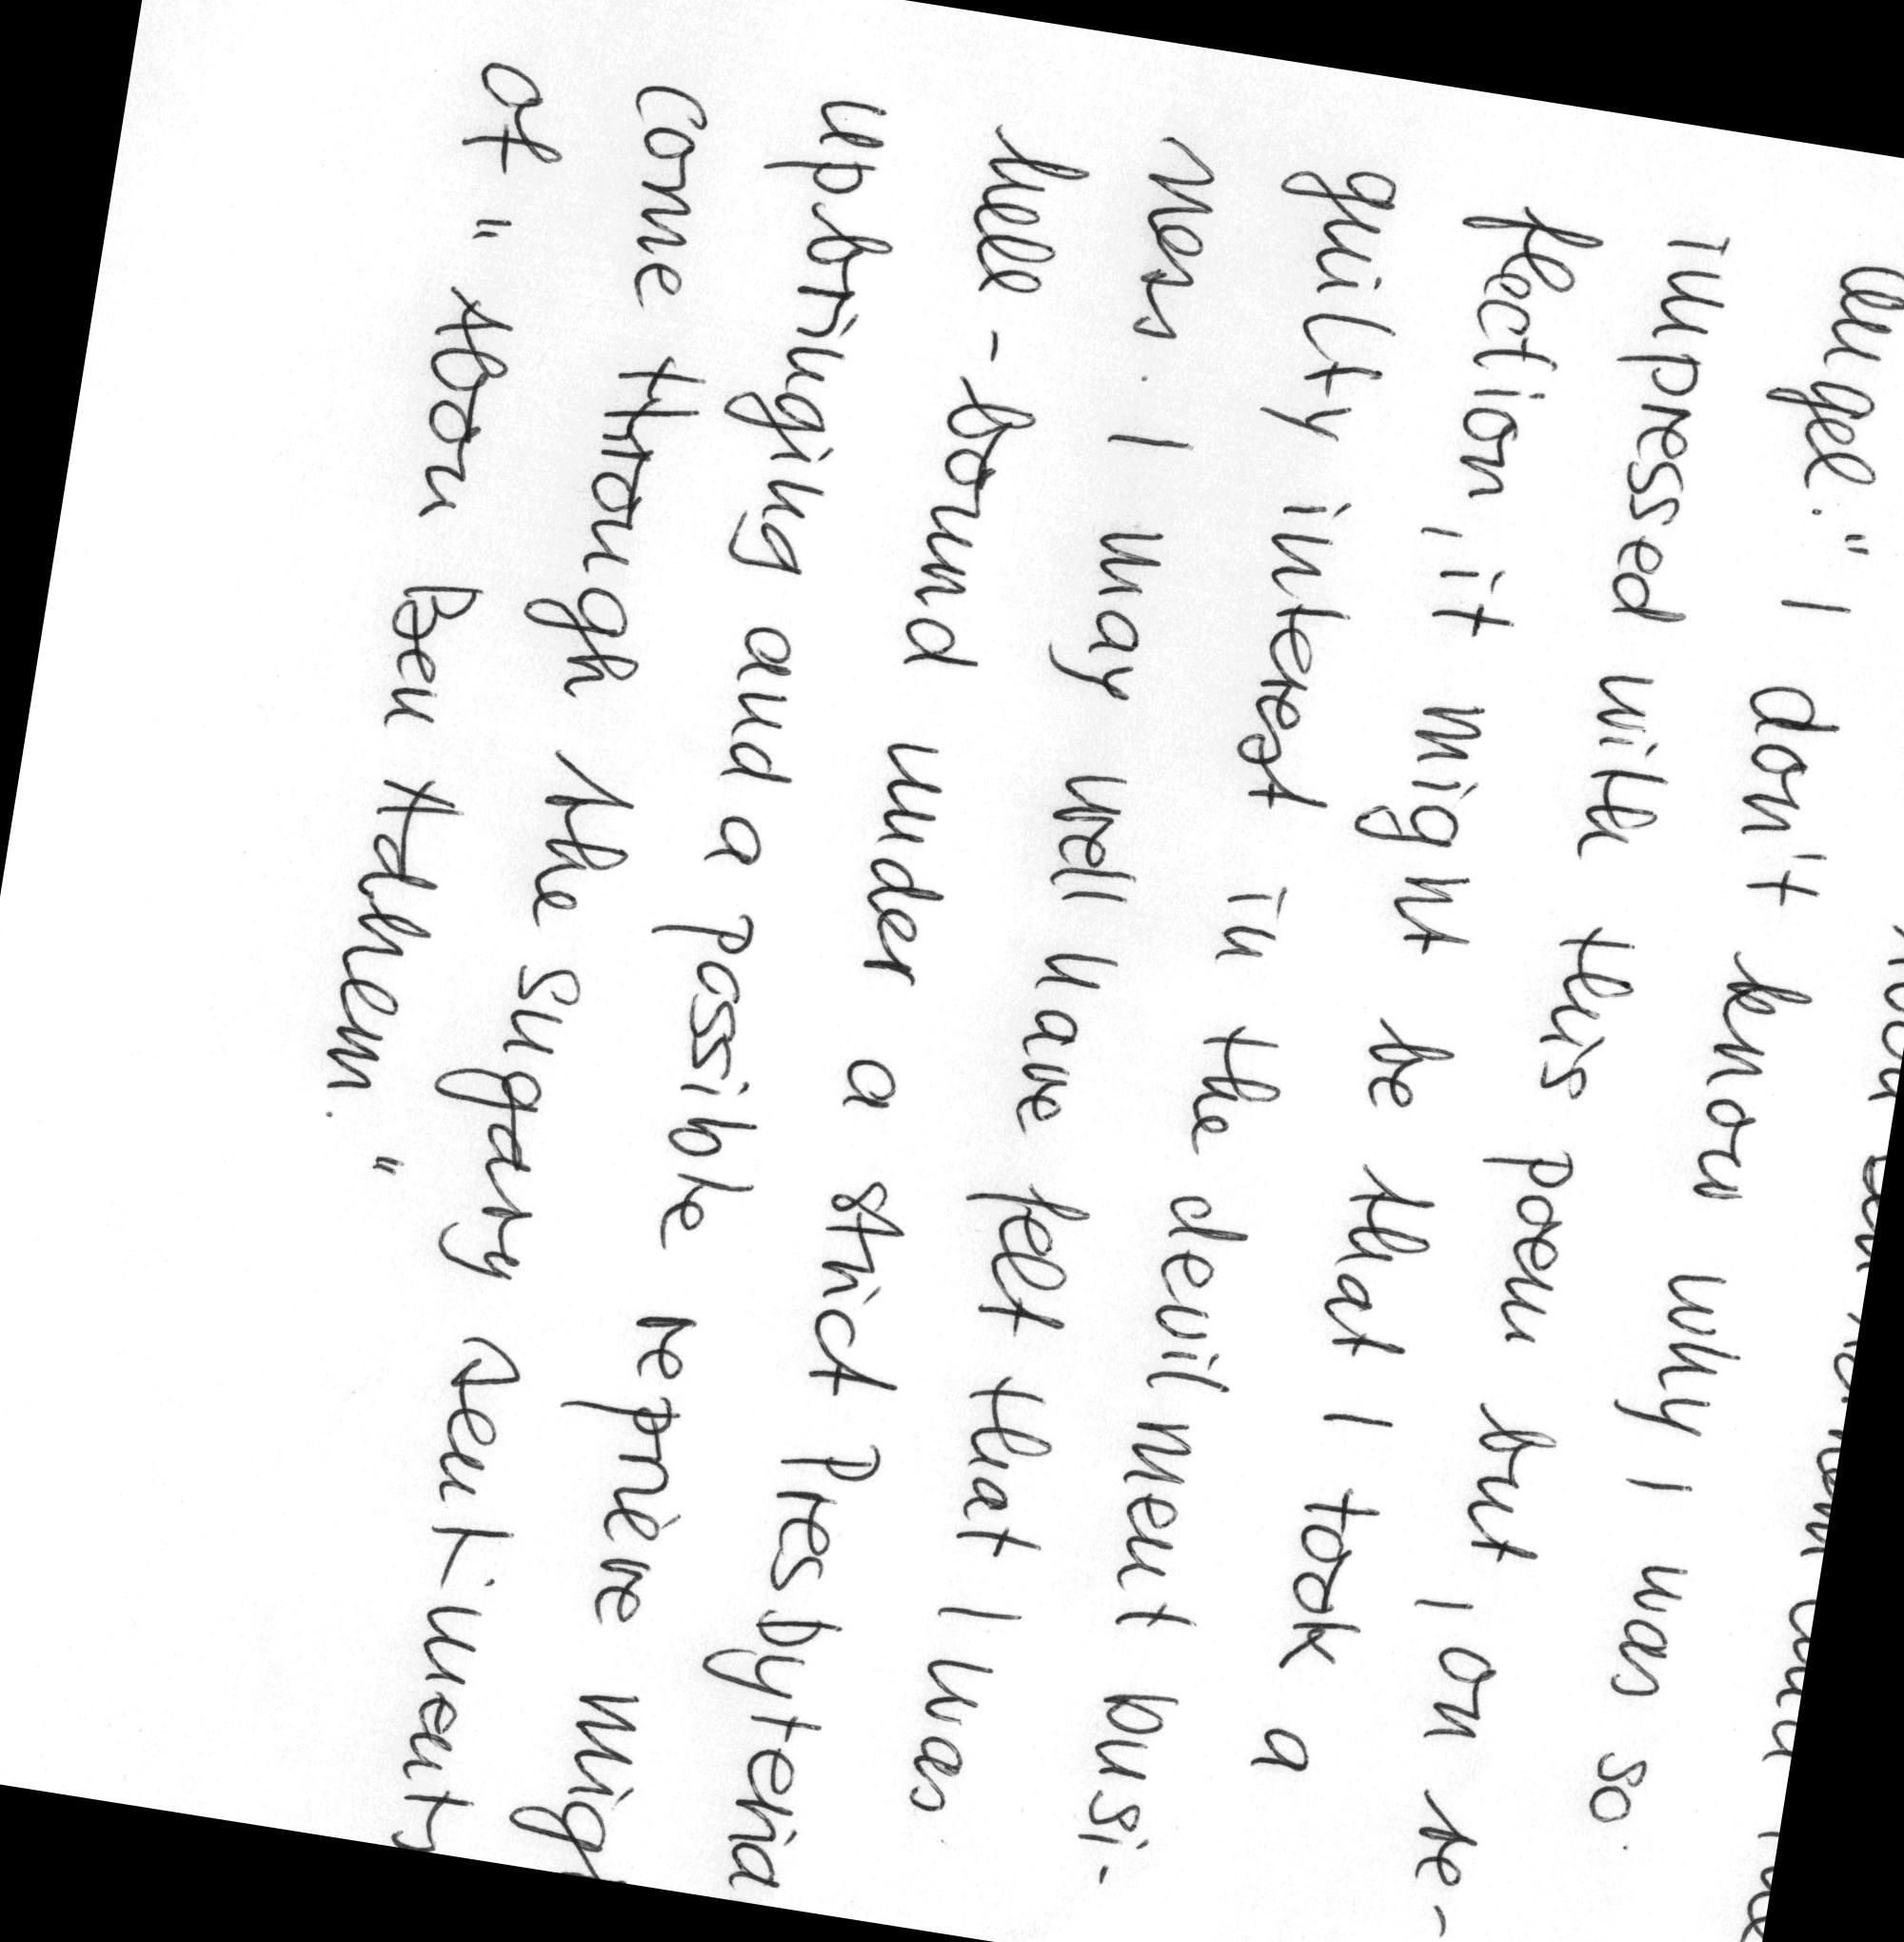 angel." I don't know why I was so
impressed with this poem but, on re-
flection, it might be that I took a
guilty interest in the devilment busi-
ness. I may well have felt that I was
hell-bound under a strict Presbyteria
upbringing and a possible reprieve mig
come through the sugary sentiments
of "Abou Ben Adhem."